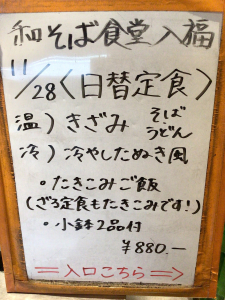 和そば食堂入福
11/28〈日替定食〉
温）きざみ そば うどん
冷）冷やしたぬき風
・たきこみご飯
（ざる定食もたきこみです！）
・小鉢2品付
¥880.—
⇒入口こちら⇒